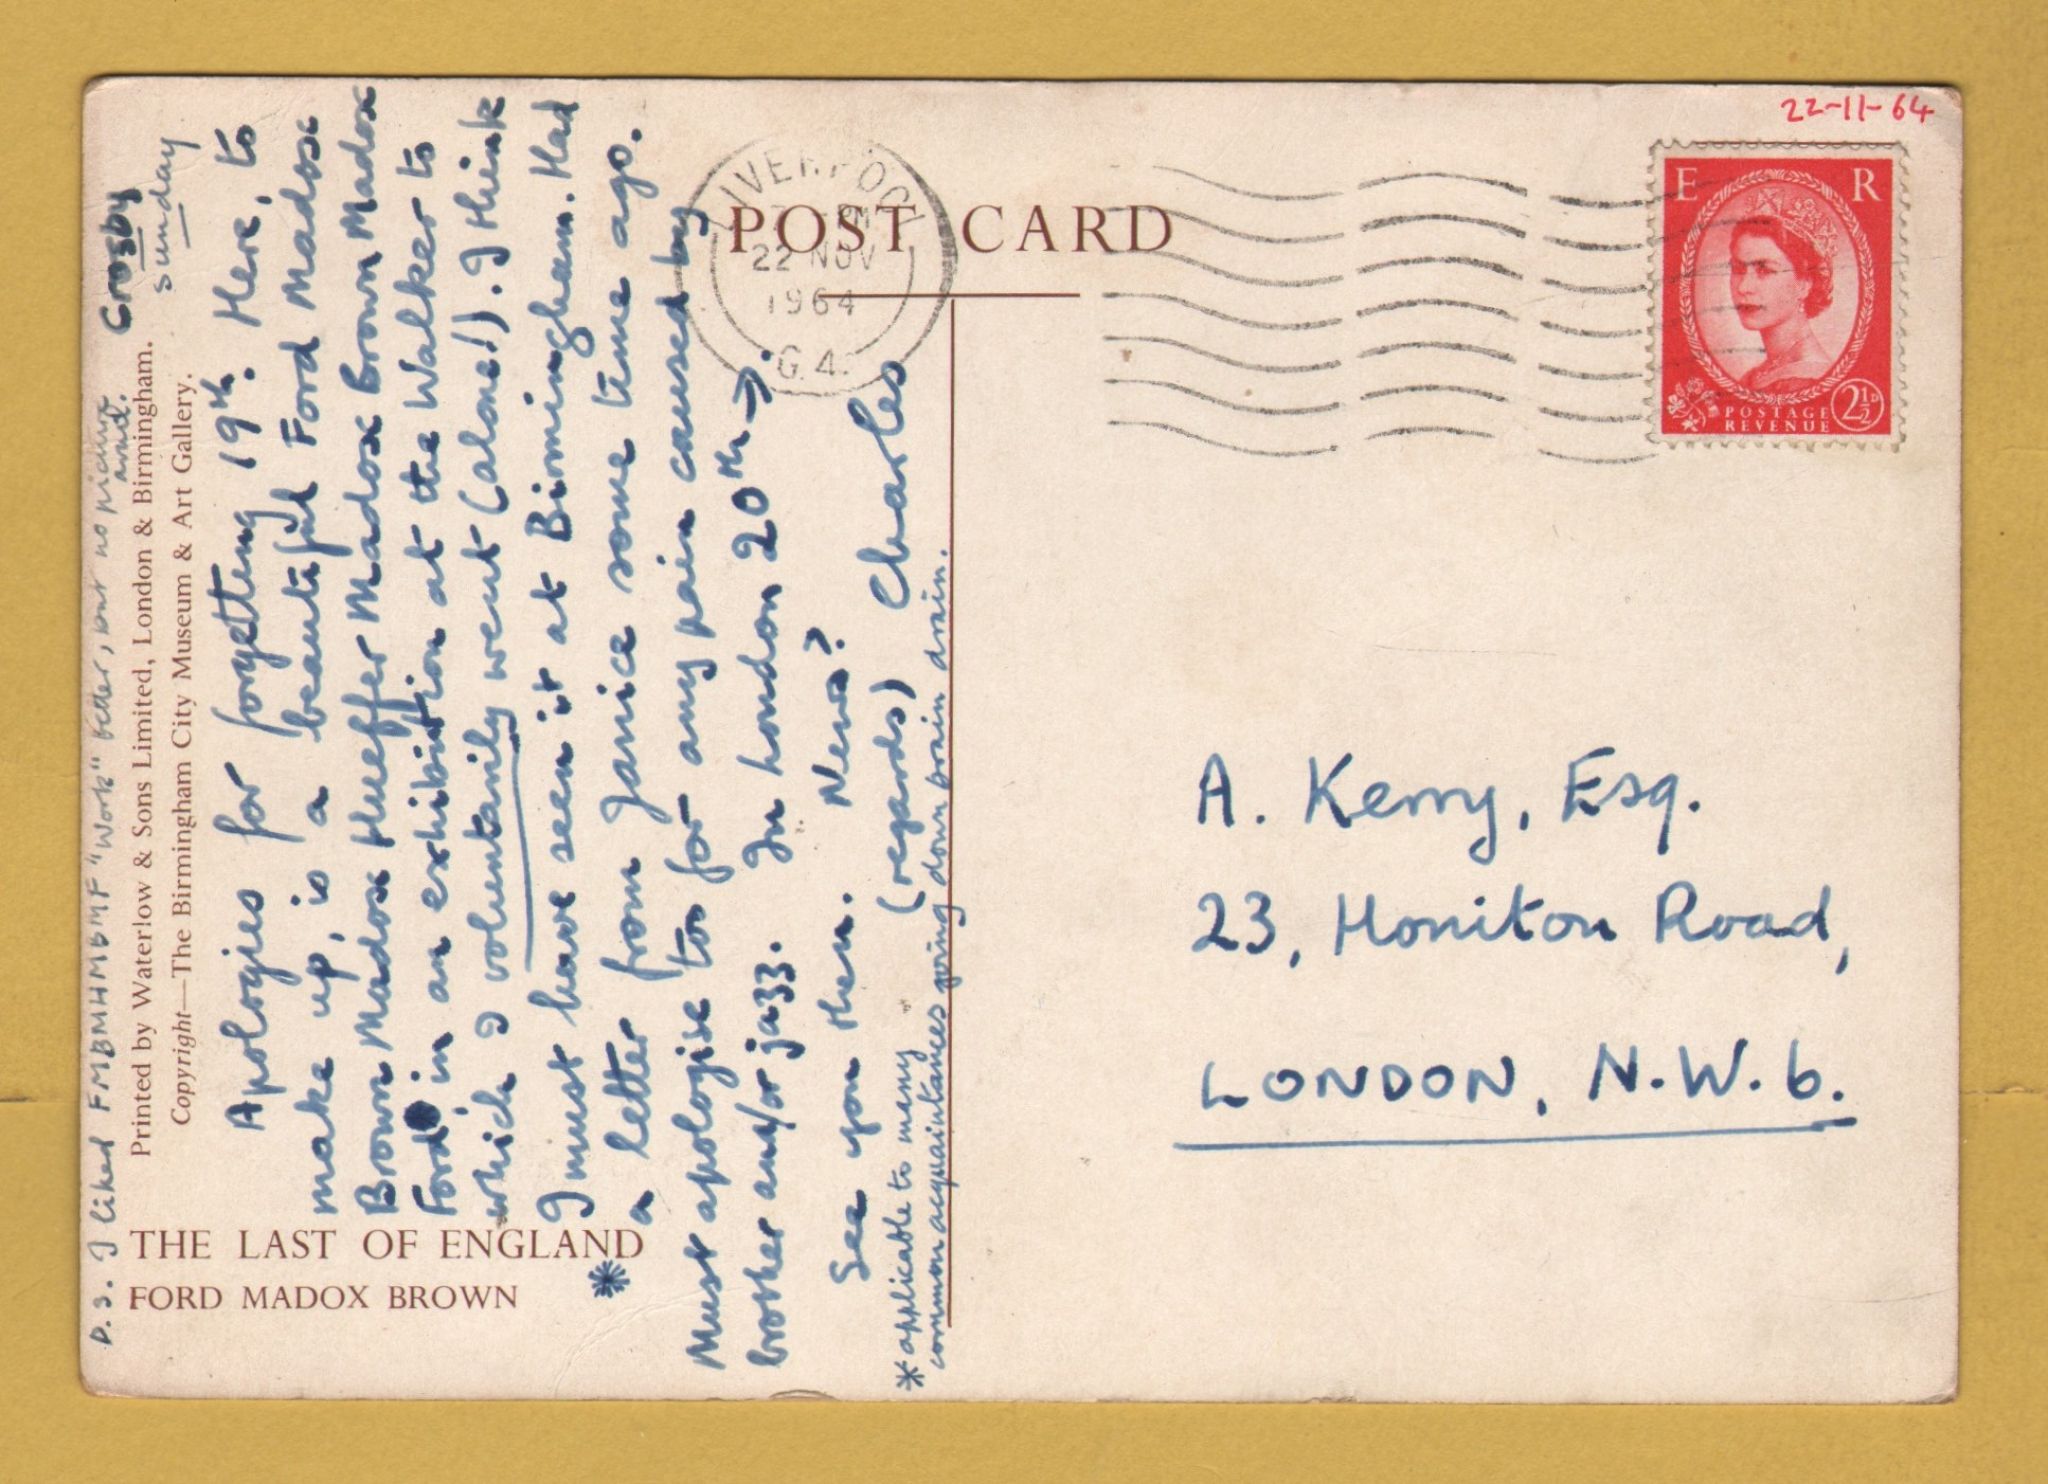 22-11-64
POST CARD
LIVERPOOL
PM
22 NOV
1964
G.4.
E R
POSTAGE
REVENUE
2½D
THE LAST OF ENGLAND
FORD MADOX BROWN
Printed by Waterlow & Sons Limited, London & Birmingham.
Copyright—The Birmingham City Museum & Art Gallery.
Crosby
Sunday
Apologies for forgetting 19th. Here, to
make up, is a beautiful Ford Madox
Brown Madox Hueffer Madox Brown Madox
Ford in an exhibition at the Walker to
which I voluntarily went (alone!). I think
I must have seen it at Birmingham. Had
a letter from Janice some time ago.
Must apologise too for any pain caused by
brother and/or jazz. In London 20th →.
See you then. News?
(regards) Charles
* applicable to many
common acquaintances going down brain drain.
*
P.S. I liked FMBMHMBMF "Work" better, but no picture
avail.
A. Kerry, Esq.
23, Honiton Road,
LONDON, N.W.6.